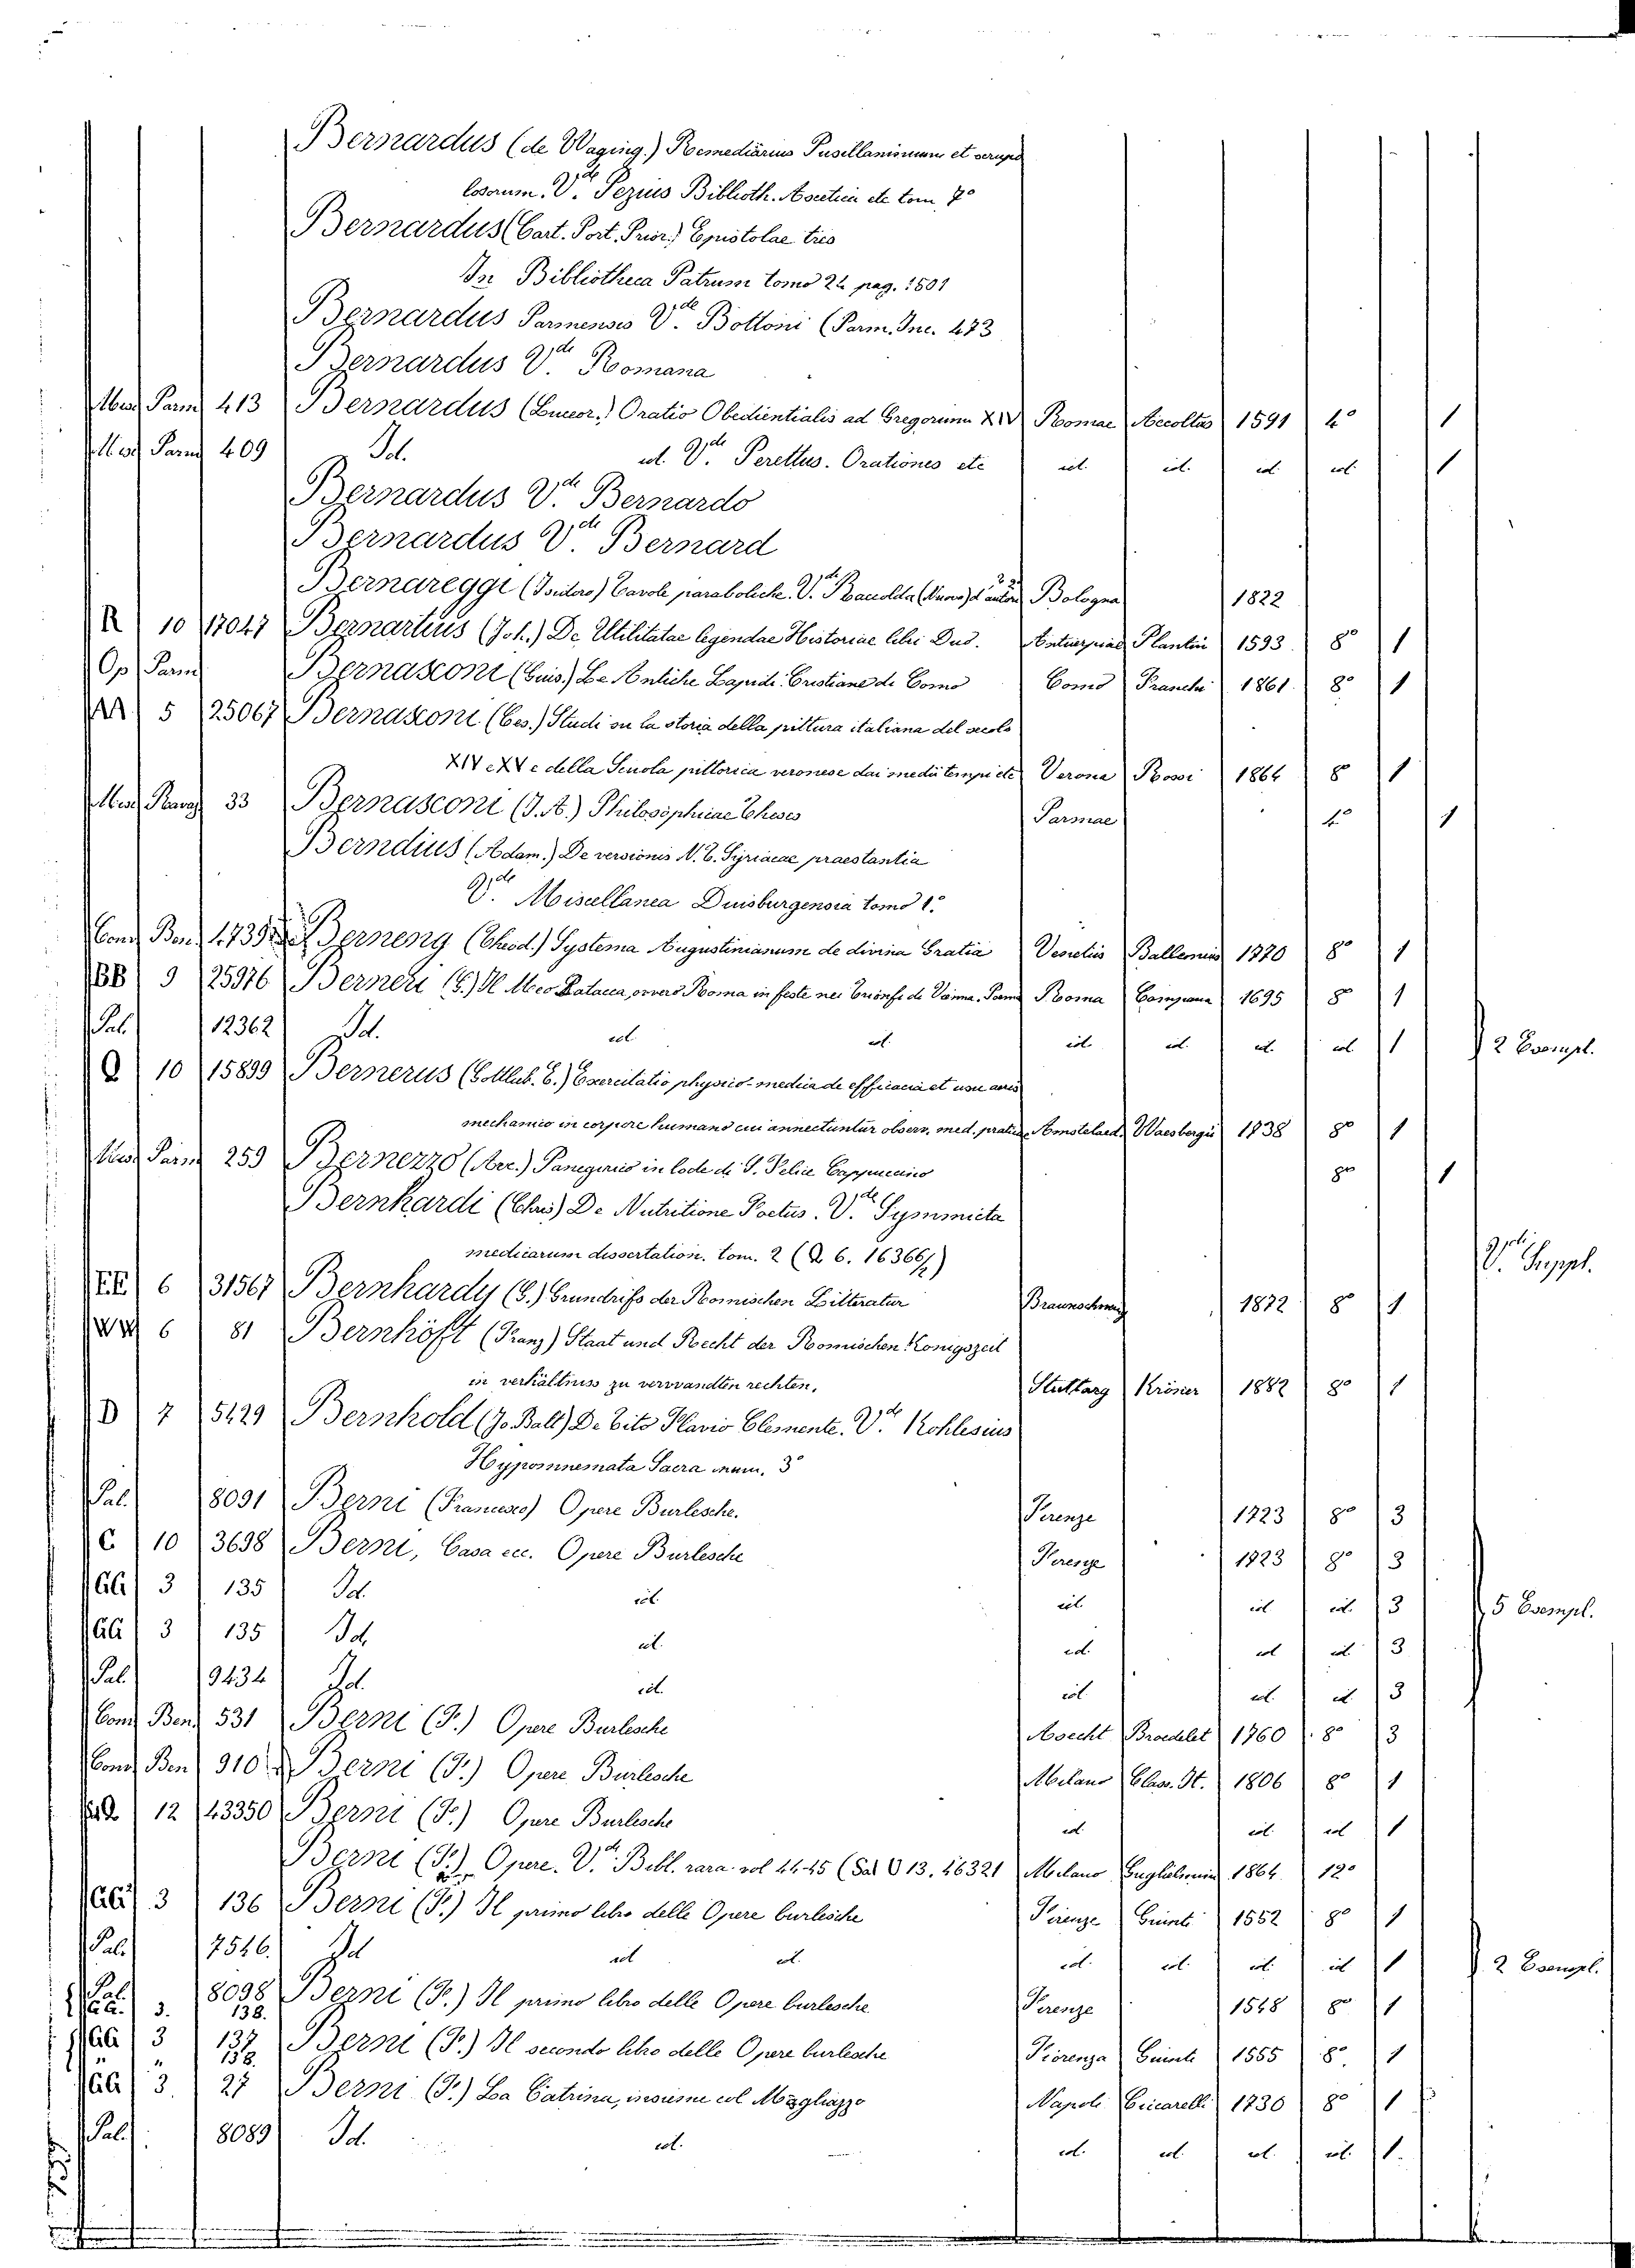 Bernardus (de Waging.) Remediarius Pusillanimium et scrupu
losorum. V.de Pezius Biblioth. Ascetica etc tom. 7°
Bernardus (Cart. Port. Prior.) Epistolae tres
In Bibliotheca Patrum tomo 24 pag. 1501
Bernardus Parmensis V.de Bottoni (Parm. Inc. 423
Bernardus V.de Romana
Misc Parm 413 Bernardus (Lucor.) Oratio Obedientialis ad Gregorium XIV Romae Accoltus 1591 4° 1
Misc Parm 409 Id. id. V.de Perettus. Orationes etc id. id. id. id. 1
Bernardus V.de Bernardo
Bernardus V.de Bernard
Bernareggi (Isidoro) Tavole paraboliche. V.de Bologna 1822
R 10 17047 Bernartius (Joh.) De Utilitatae legendae Historiae libri Duo. Antuerpiae Plantin 1593 8° 1
Op Parm Bernasconi (Gius.) Le Antiche Lapidi Cristiane di Como Como Franchi 1861 8° 1
5 25067 Bernasconi (Ces.) Studi su la storia della pittura italiana del secolo
XIV e XV e della Scuola pittorica veronese dai medii tempi etc Verona Rossi 1864 8° 1
Misc 33 Bernasconi (J. A.) Philosophicae Theses Parmae 4° 1
Berndius (Adam.) De versionis N. T. Syriacae praestantia
V.de Miscellanea Duisburgensia tomo 1.°
Conv Ben 1739 Berneng (Theod.) Systema Augustinianum de divina Gratia Venetiis 1770 8° 1
BB 9 25976 Berneri (G.) Il Meo Patacca, ovvero Roma in feste nei trionfi di Vienna. Roma Campana 1695 8° 1
Pal. 12362 Id. id. id. id. id. id. id. 1 2 Esempl.
Q 10 15899 Bernerus (Gottlieb. E.) Exercitatio physico-medica de efficacia et usu aeris
mechanico in corpore humano cui annectuntur observ. med. pratica Amstelaed. Waesbergii 1738 8° 1
Misc Parm 259 Bernezzo (Aer.) Panegirico in lode di S. Felice Cappuccino 8° 1
Bernhardi (Chris) De Nutritione Foetus. V.de Symmicta
medicarum dissertation. tom. 2 (Q. 6. 16366/2)
EE 6 31567 Bernhardy (G.) Grundriss der Romischen Litteratur Braunschweig 1872 8° 1 V.di Suppl.
WW 6 81 Bernhöft (Franz) Staat und Recht der Romischen Konigszeit
in verhältniss zu verwandten rechten. Stuttarg Kröner 1882 8° 1
D 7 5429 Bernhold (Jo. Balt) De Tito Flavio Clemente. V.de Kohlesius
Hypomnemata Sacra num. 3°
Pal. 8091 Berni (Francesco) Opere Burlesche. Firenze 1723 8° 3
C 10 3698 Berni, Casa ecc. Opere Burlesche Firenze 1723 8° 3
GG 3 135 Id. id. id. id. id. 3 5 Esempl.
GG 3 135 Id. id. id. id. id. 3
Pal. 9434 Id. id. id. id. id. 3
Conv Ben 531 Berni (F.) Opere Burlesche Usecht Broedelet 1760 8° 3
Conv Ben 910 Berni (F.) Opere Burlesche Milano Class. It. 1806 8° 1
12 43350 Berni (F.) Opere Burlesche id. id. id 1
Berni (F.) Opere. V.de Bibl. rara vol 44-45 (Sal O 13. 46321 Milano 1864 12°
GG 3 136 Berni (F.) Il primo libro delle Opere burlesche Firenze Giunti 1552 8° 1
Pal. 7546. Id id id. id. id. id. id 1 2 Esempl.
Pal. 8098 Berni (F.) Il primo libro delle Opere burlesche Firenze 1548 8° 1
GG. 3. 138.
GG 3 137 Berni (F.) Il secondo libro delle Opere burlesche Fiorenza Giunti 1555 8° 1
" " 138.
GG 3. 27 Berni (F.) La Catrina, insieme col Mogliazzo Napoli Ciccarelli 1730 8° 1
Pal. 8089 Id. id. id. id. id. id. 1.